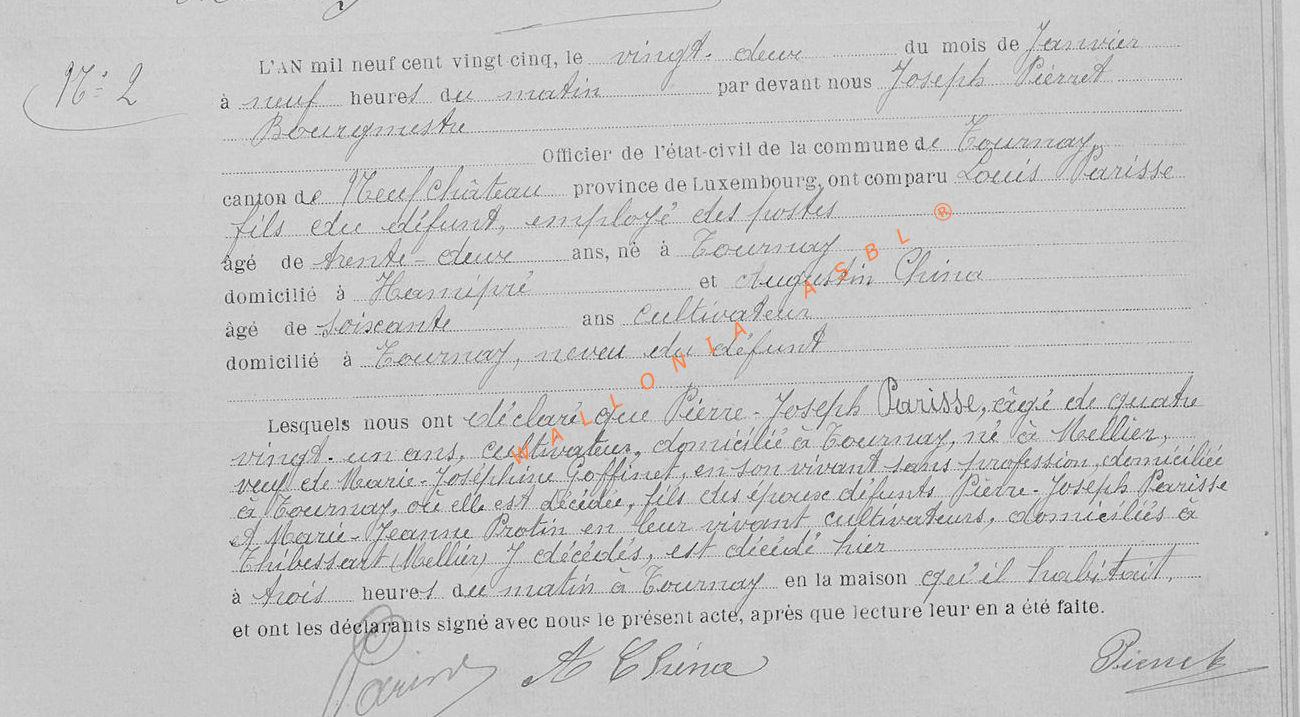 N° 2
L'AN mil neuf cent vingt cinq, le vingt-deux du mois de Janvier
à neuf heures du matin par devant nous Joseph Pierret
Bourgmestre
Officier de l'état-civil de la commune de Tournay,
canton de Neufchâteau province de Luxembourg, ont comparu Louis Parisse
fils du défunt, employé des postes
âgé de trente-deux ans, né à Tournay
domicilié à Hamipré et Augustin China
âgé de soixante ans cultivateur
domicilié à Tournay, neveu du défunt
Lesquels nous ont déclaré que Pierre-Joseph Parisse, âgé de quatre
vingt-un ans, cultivateur, domicilié à Tournay, né à Mellier,
veuf de Marie-Joséphine Goffinet, en son vivant sans profession, domiciliée
à Tournay, où elle est décédée, fils des époux défunts Pierre-Joseph Parisse
et Marie-Jeanne Protin en leur vivant cultivateurs, domiciliés à
Thibessart (Mellier) y décédés, est décédé hier
à trois heures du matin à Tournay en la maison qu'il habitait,
et ont les déclarants signé avec nous le présent acte, après que lecture leur en a été faite.
Parisse A China Pierret
WALLONIA ASBL ®